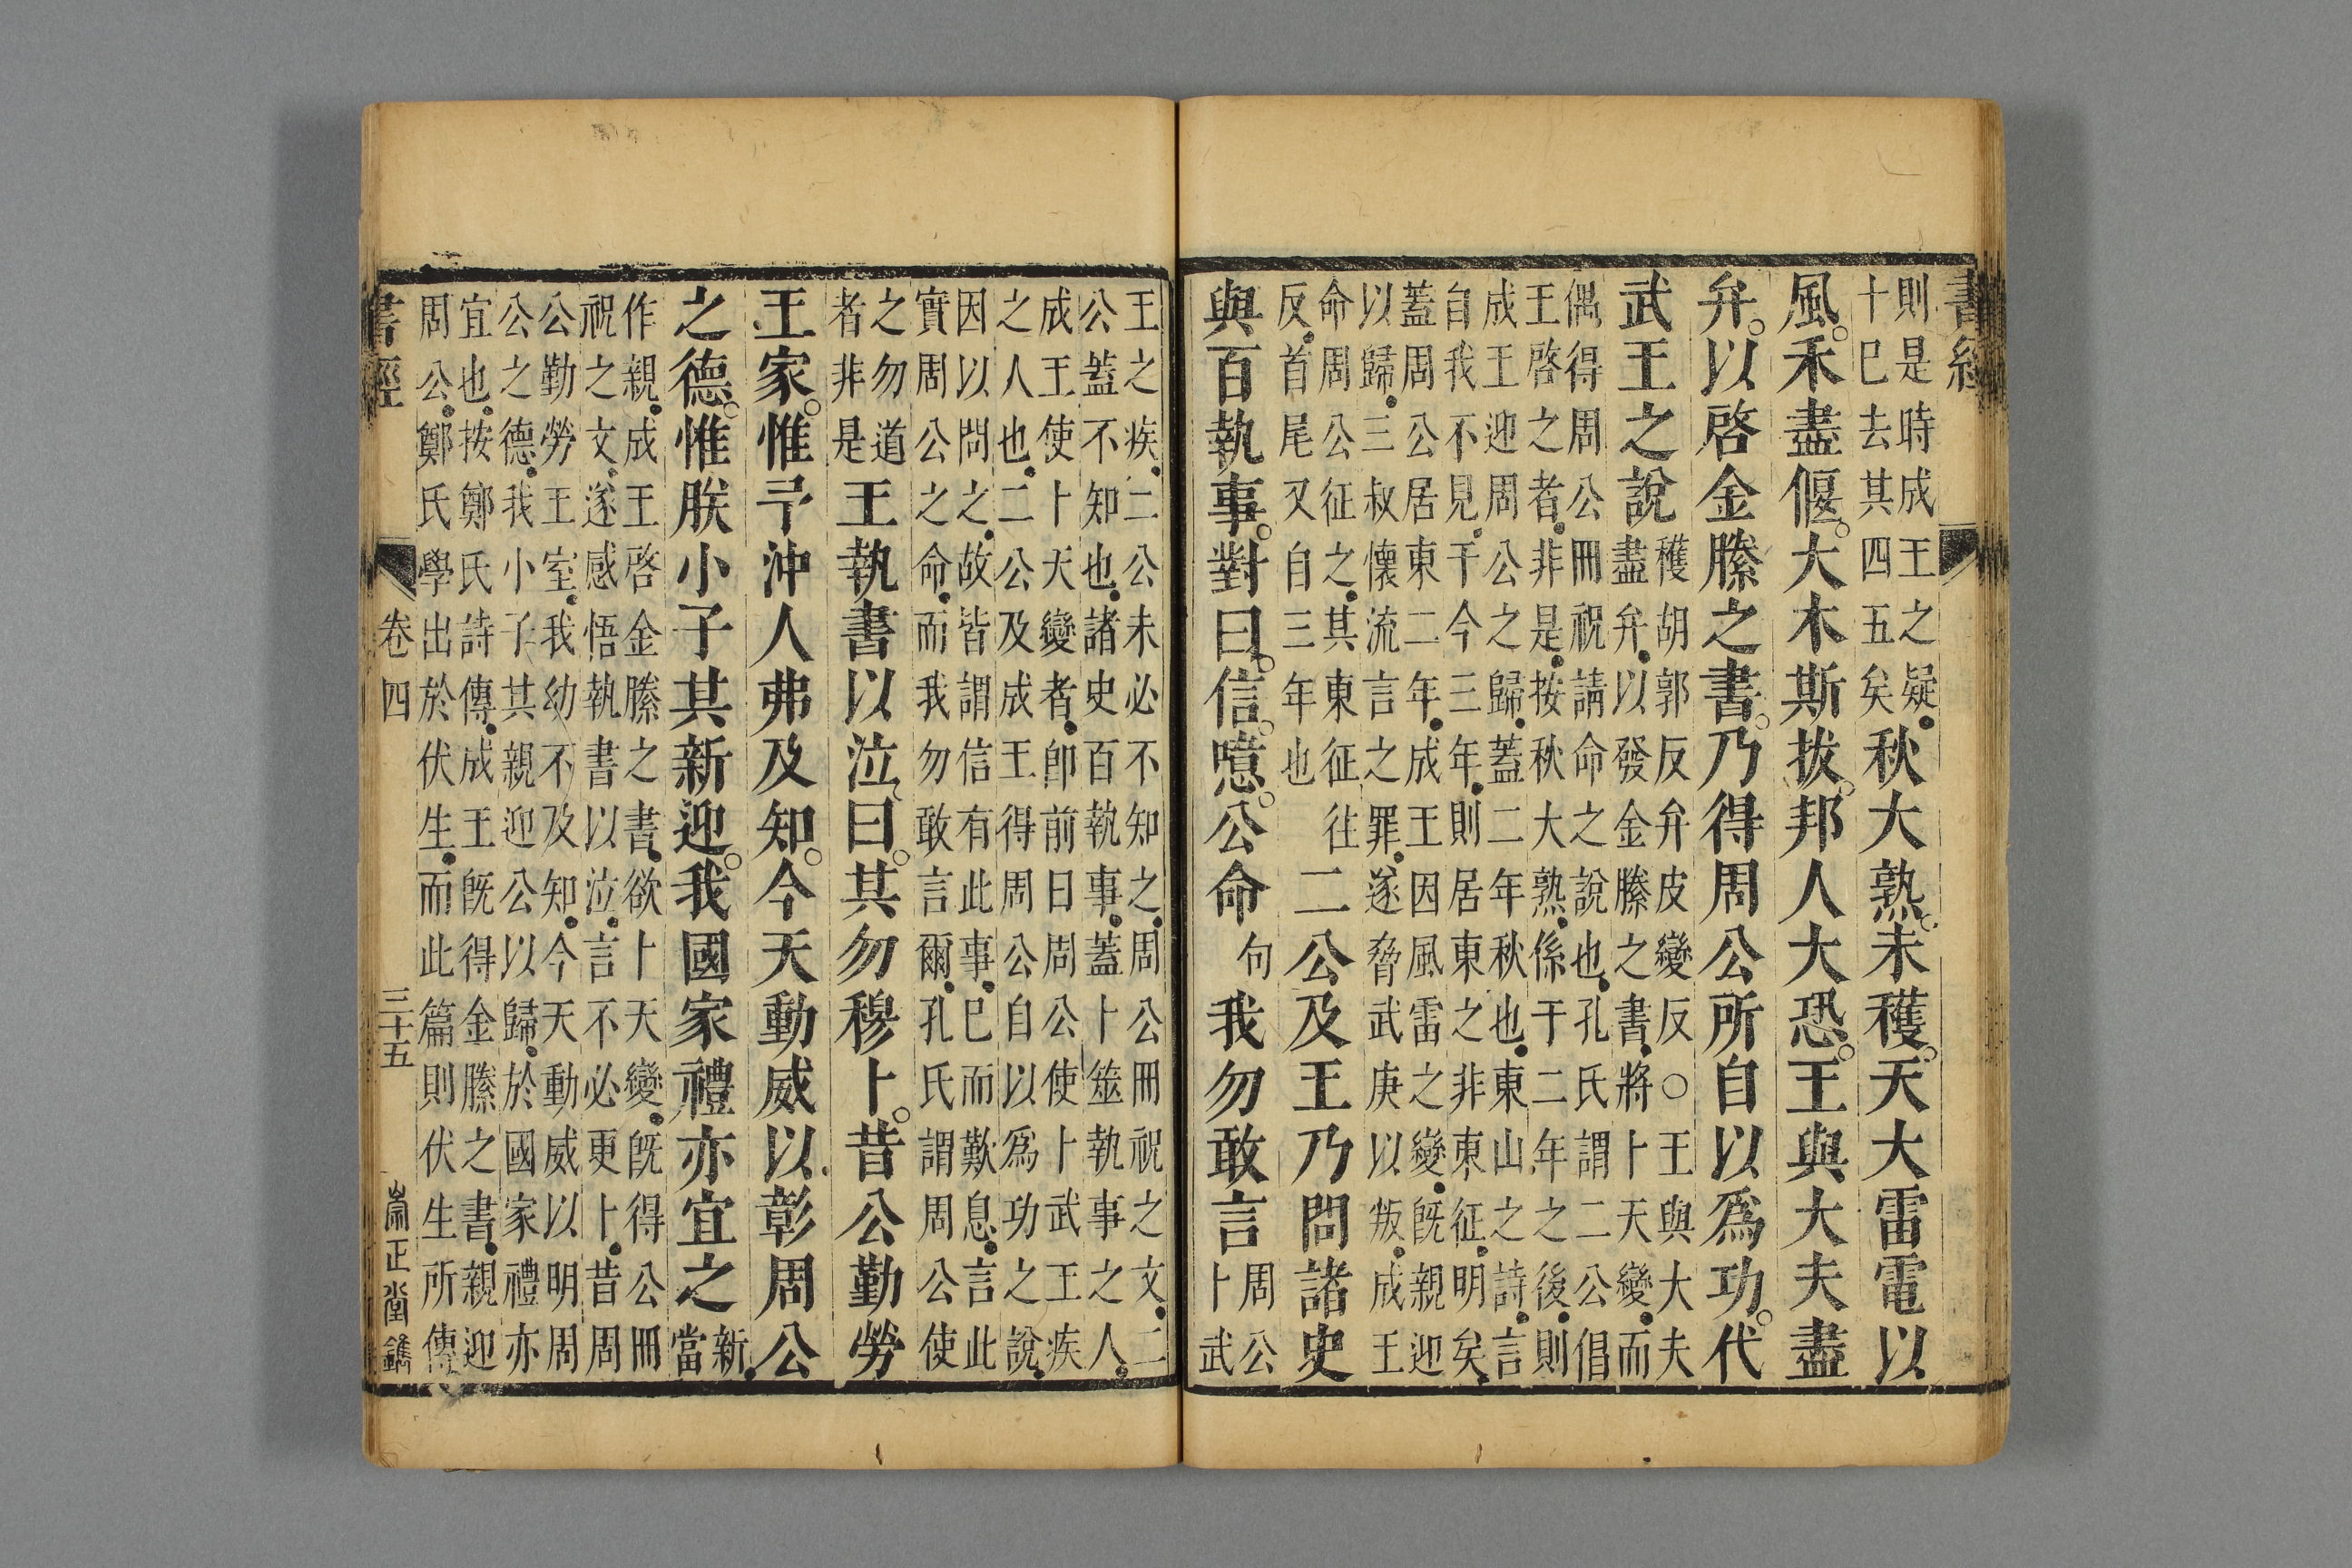 書經
則是時成王之疑
十巳去其四五矣
秋大熟未穫天大雷電以
風禾盡偃大木斯拔邦人大恐王與大夫盡
弁以啓金縢之書乃得周公所自以爲功代
武王之說
穫胡郭反弁皮變反○王與大夫
盡弁以發金縢之書將卜天變而
偶得周公冊祝請命之說也孔氏謂二公倡
王啓之者非是按秋大熟係于二年之後則
成王迎周公之歸蓋二年秋也東山之詩言
自我不見于今三年則居東之非東征明矣
蓋周公居東二年成王因風雷之變旣親迎
以歸三叔懷流言之罪遂脅武庚以叛成王
命周公征之其東征往
反首尾又自三年也
二公及王乃問諸史
與百執事對曰信噫公命句我勿敢言
周公
卜武
王之疾二公未必不知之周公冊祝之文二
公蓋不知也諸史百執事蓋卜筮執事之人
成王使卜天變者卽前日周公使卜武王疾
之人也二公及成王得周公自以爲功之說
因以問之故皆謂信有此事巳而歎息言此
實周公之命而我勿敢言爾孔氏謂周公使
之勿道
者非是
王執書以泣曰其勿穆卜昔公勤勞
王家惟予沖人弗及知今天動威以彰周公
之德惟朕小子其新迎我國家禮亦宜之
新
當
作親成王啓金縢之書欲卜天變旣得公冊
祝之文遂感悟執書以泣言不必更卜昔周
公勤勞王室我幼不及知今天動威以明周
公之德我小子其親迎公以歸於國家禮亦
宜也按鄭氏詩傳成王旣得金縢之書親迎
周公鄭氏學出於伏生而此篇則伏生所傳
書經 卷四 三十五 崇正堂鐫